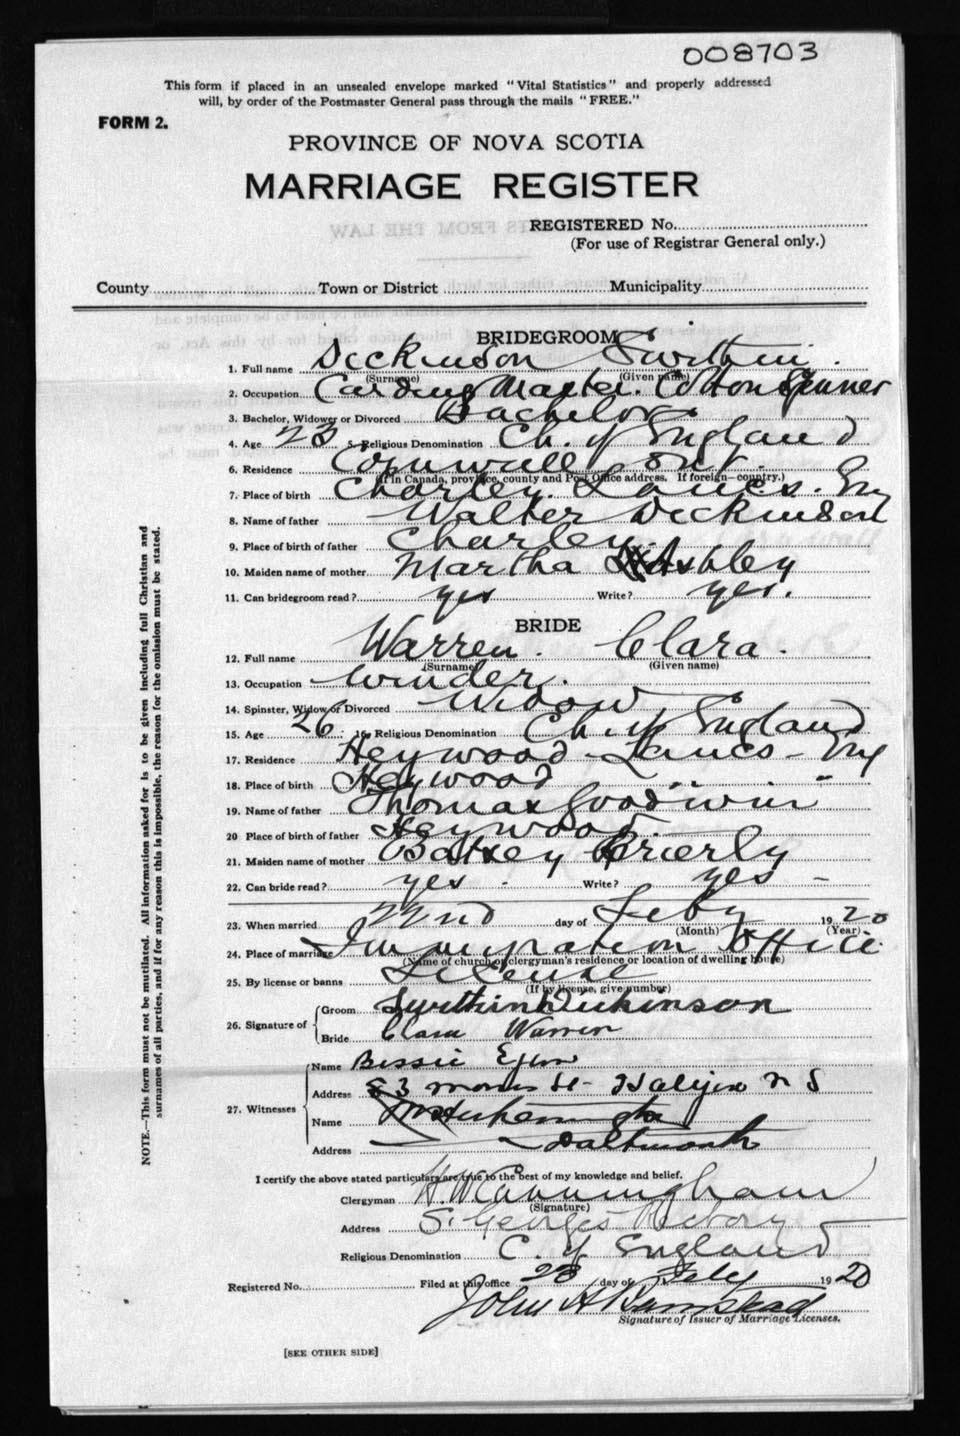 008703
This form if placed in an unsealed envelope marked "Vital Statistics" and properly addressed
will, by order of the Postmaster General pass through the mails "FREE."
FORM 2.
PROVINCE OF NOVA SCOTIA
MARRIAGE REGISTER
REGISTERED No.
(For use of Registrar General only.)
County Town or District Municipality
BRIDEGROOM
1. Full name Dickinson Swithin.
(Surname) (Given name)
2. Occupation Carding Master. Cotton Spinner
3. Bachelor, Widower or Divorced Bachelor
4. Age 23 5. Religious Denomination Ch. of England
6. Residence Cornwall Ont.
(If in Canada, province, county and Post Office address. If foreign—country.)
7. Place of birth Chorley. Lancs. Eng
8. Name of father Walter Dickinson
9. Place of birth of father Chorley.
10. Maiden name of mother Martha Ashley
11. Can bridegroom read? yes Write? yes.
BRIDE
12. Full name Warren. Clara.
(Surname) (Given name)
13. Occupation Winder.
14. Spinster, Widow or Divorced Widow
15. Age 26 16. Religious Denomination Ch. of England
17. Residence Heywood Lancs - Eng
18. Place of birth Heywood " "
19. Name of father Thomas Goodwin
20 Place of birth of father Heywood
21. Maiden name of mother Brierly
22. Can bride read? yes - Write? yes -
23. When married 22nd day of Feby 1920
(Month) (Year)
24. Place of marriage Immigration Office.
(Name of church or clergyman's residence or location of dwelling house)
25. By license or banns License
(If by license, give number)
26. Signature of Groom Swithin Dickinson
Bride Clara Warren
27. Witnesses Name Bessie
Address 83 Morris St - Halifax N S
Name
Address Dartmouth
I certify the above stated particulars are true to the best of my knowledge and belief.
Clergyman H. W. Cunningham
(Signature)
Address S. Georges Rectory
Religious Denomination C. of England
Registered No. Filed at this office 23 day of Feby 1920
John A
Signature of Issuer of Marriage Licenses.
[SEE OTHER SIDE]
NOTE.—This form must not be mutilated. All information asked for is to be given including full Christian and
surnames of all parties, and if for any reason this is impossible, the reason for the omission must be stated.